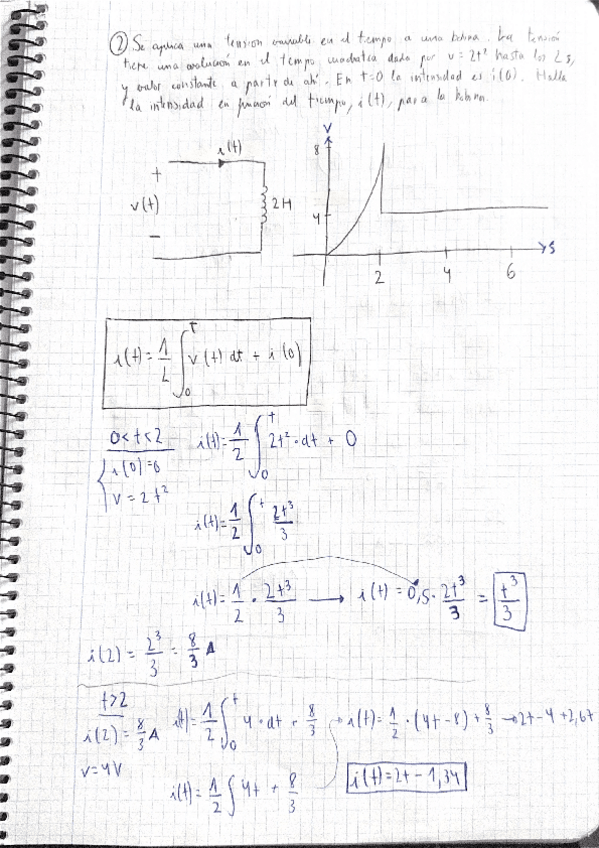 ② Se aplica una tension variable en el tiempo a una bobina. La tensión
tiene una evolución en el tiempo cuadratica dada por v = 2t² hasta los 2 s,
y valor constante a partir de ahí. En t=0 la intensidad es i(0). Halla
la intensidad en función del tiempo, i(t), para la bobina.
i(t)
+
v(t)
−
2H
V
8
4
2 4 6
S
i(t) = 1/L ∫₀ᵗ v(t) dt + i(0)
0<t<2
i(0)=0
v = 2t²
i(t) = 1/2 ∫₀ᵗ 2t²·dt + 0
i(t) = 1/2 ∫₀ᵗ 2t³/3
i(t) = 1/2 · 2t³/3 → i(t) = 0,5 · 2t³/3 = t³/3
i(2) = 2³/3 = 8/3 A
t>2
i(2) = 8/3 A
v=4V
i(t) = 1/2 ∫₀ᵗ 4·dt + 8/3 → i(t) = 1/2 · (4t−8) + 8/3 → 2t−4+2,67
i(t) = 1/2 ∫ 4t + 8/3
i(t) = 2t − 1,34